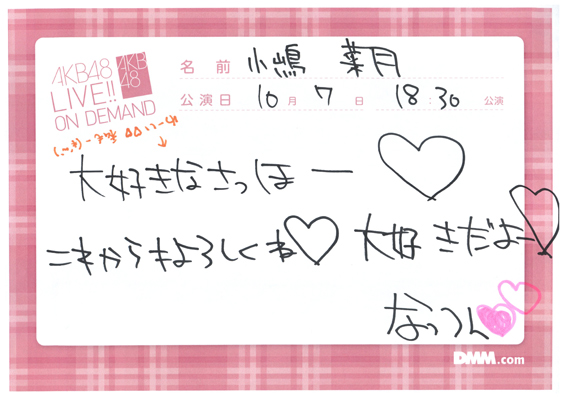 AKB48
LIVE!!
ON DEMAND
AKB
48
名前 小嶋 菜月
公演日 10月 7日 18:30 公演
大好きなさっほー
これからもよろしくね♡ 大好きだよー♡
なっつん
DMM.com